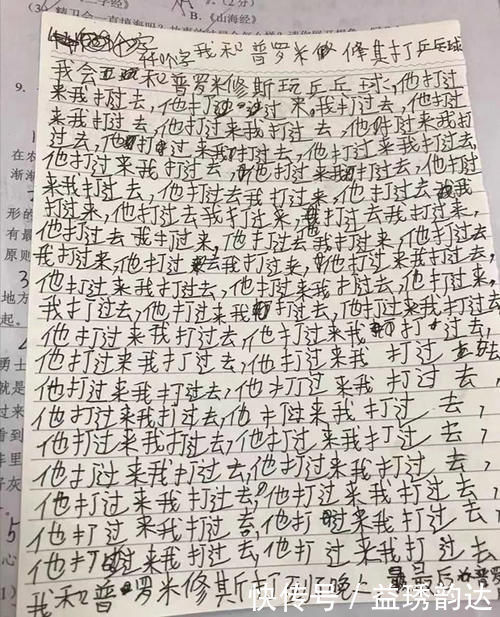 《山海经》
我和普罗米修斯打乒乓球
我会和普罗米修斯玩乒乓球,他打过
来我打过去,他打过来我打过去,他打过
来我打过去,他打过来我打过去,他打过来我打
过去,他打过来我打过去,他打过来我打过去,
他打过来我打过去,他打过来我打过去,他打过
来我打过去,他打过去我打过来,他打过去我
打过来,他打过去我打过来,我打过去我打过来,
他打过去我打过来,他打过去他打过来,他打过去
我打过来,他打过去我打过来,他打过来我打过去,
他打过来我打过去,他打过来我打过去,他打过来
我打过去,他打过来我打过去,他打过来我打过去
他打过来我打过去,他打过来我打过去,
他打过来我打过去,他打过来我打过去
他打过来我打过去,他打过来我打过去,
他打过来我打过去,他打过来我打过去,
他打过来我打过去,他打过来我打过去,
他打过来我打过去,他打过来我打过去,
他打过来我打过去,他打过来我打过去,
他打过来我打过去,他打过来我打过去,
他打过来我打过去,他打过来我打过去
我和普罗米修斯打
快传号/益琇韵达